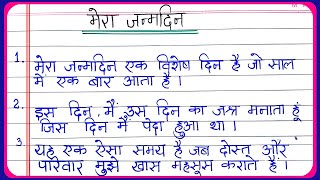 मेरा जन्मदिन
1. मेरा जन्मदिन एक विशेष दिन है जो साल
में एक बार आता है।
2. इस दिन, मैं उस दिन का जश्न मनाता हूं
जिस दिन मैं पैदा हुआ था।
3. यह एक ऐसा समय है जब दोस्त और
परिवार मुझे खास महसूस कराते हैं।